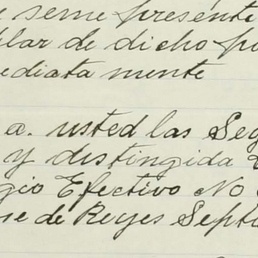 e seme presente
plar de dicho p
ediata mente
a. usted las Seg
y distingida
gio Efectivo No
se de Reyes Septi